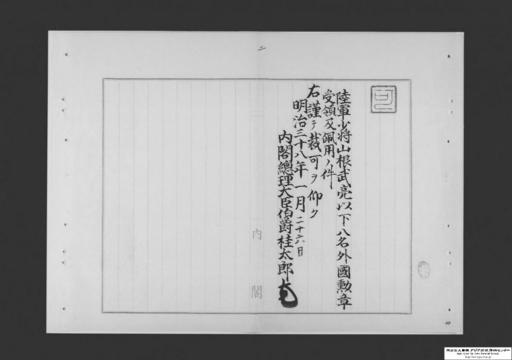 陸軍少将山根武亮以下八名外國勲章
受領及佩用ノ件
右謹テ裁可ヲ仰ク
明治三十八年一月二十六日
内閣總理大臣伯爵桂太郎
内閣